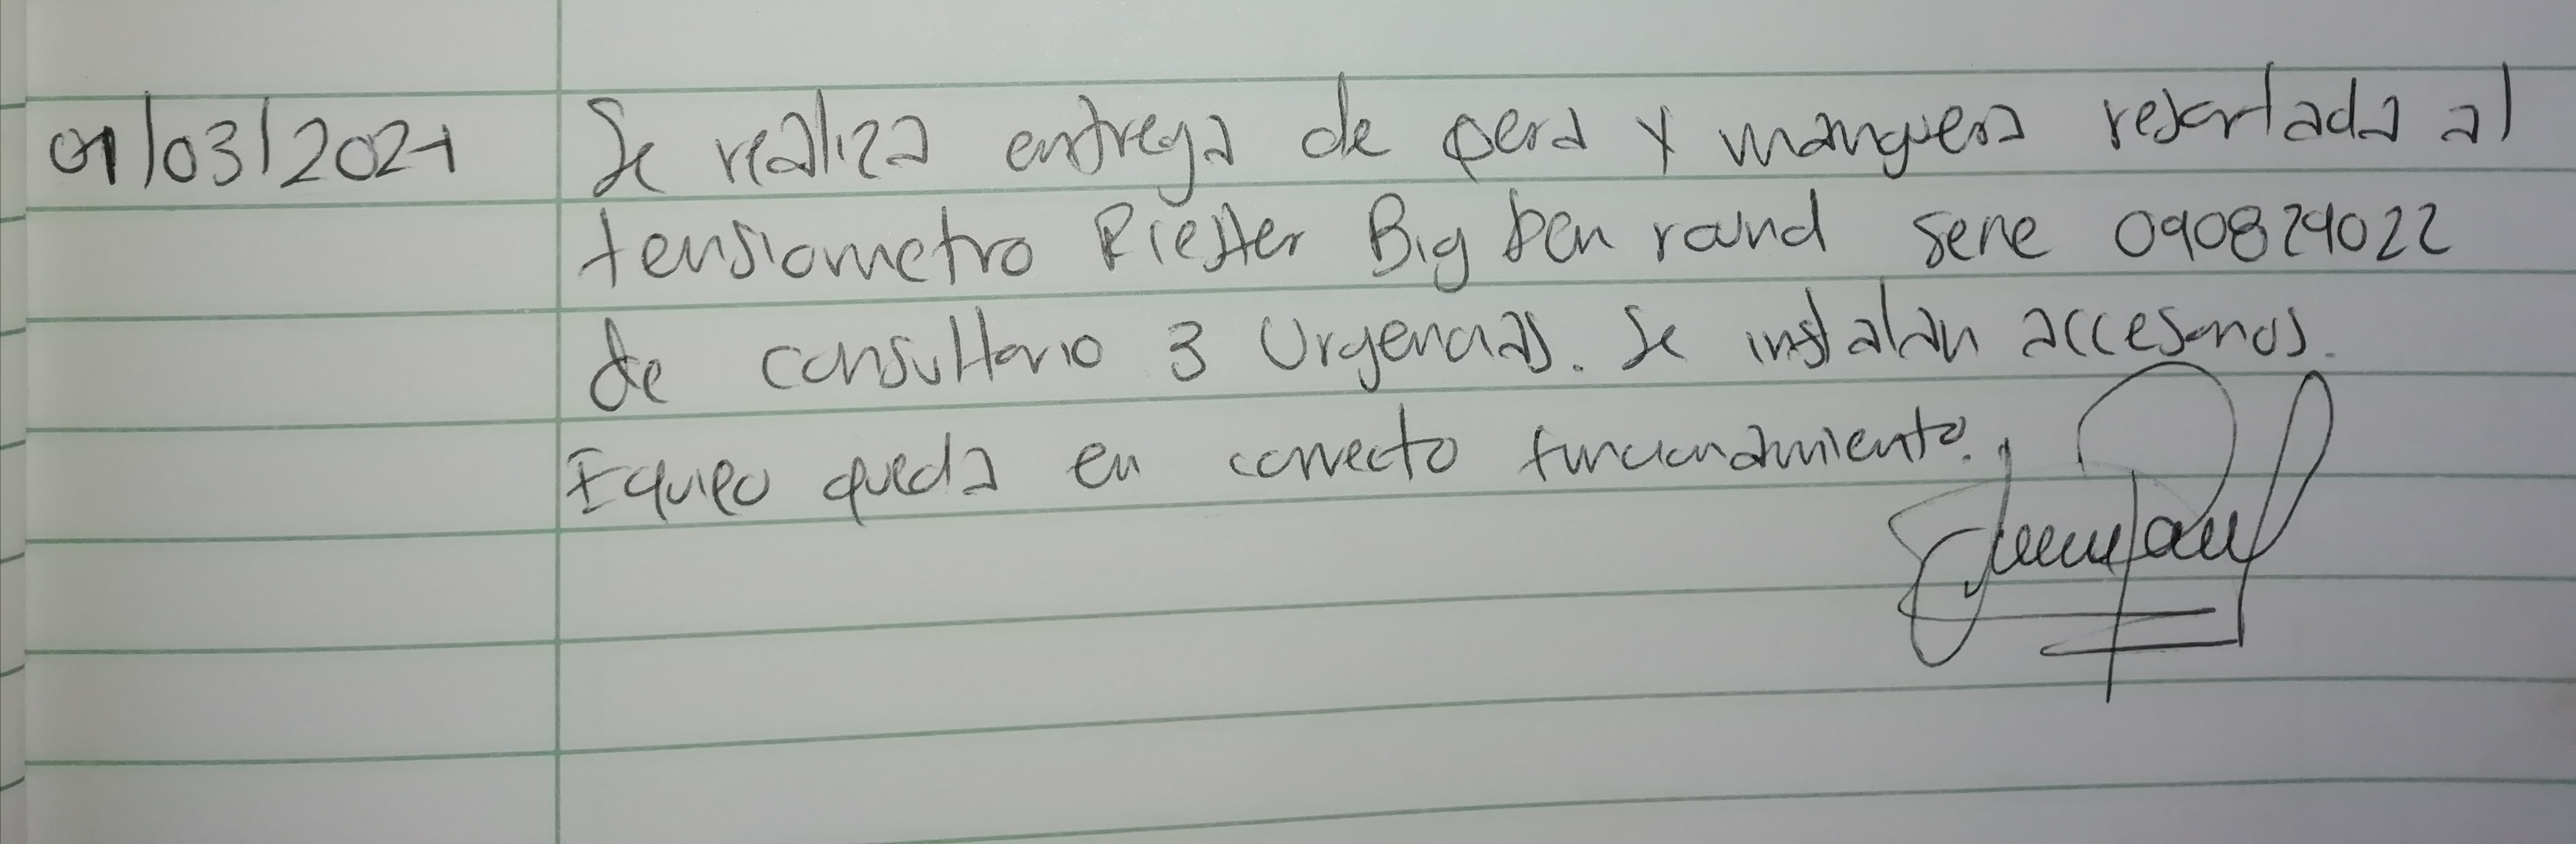 01/03/2021 Se realiza entrega de pera y manguera resortada al
tensiometro Riester Big ben round serie 090829022
de consultorio 3 Urgencias. Se instalan accesorios.
Equipo queda en correcto funcionamiento.